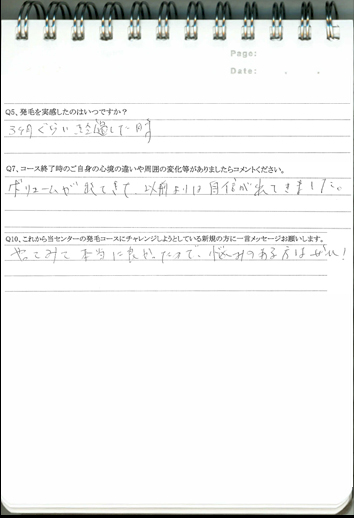 Page:
Date: . .
Q5、発毛を実感したのはいつですか?
3ヶ月ぐらい経過した時
Q7、コース終了時のご自身の心境の違いや周囲の変化等がありましたらコメントください。
ボリュームが出てきて、以前よりは自信が出てきました。
Q10、これから当センターの発毛コースにチャレンジしようとしている新規の方に一言メッセージお願いします。
やってみて本当に良かったので、悩みのある方はぜひ!